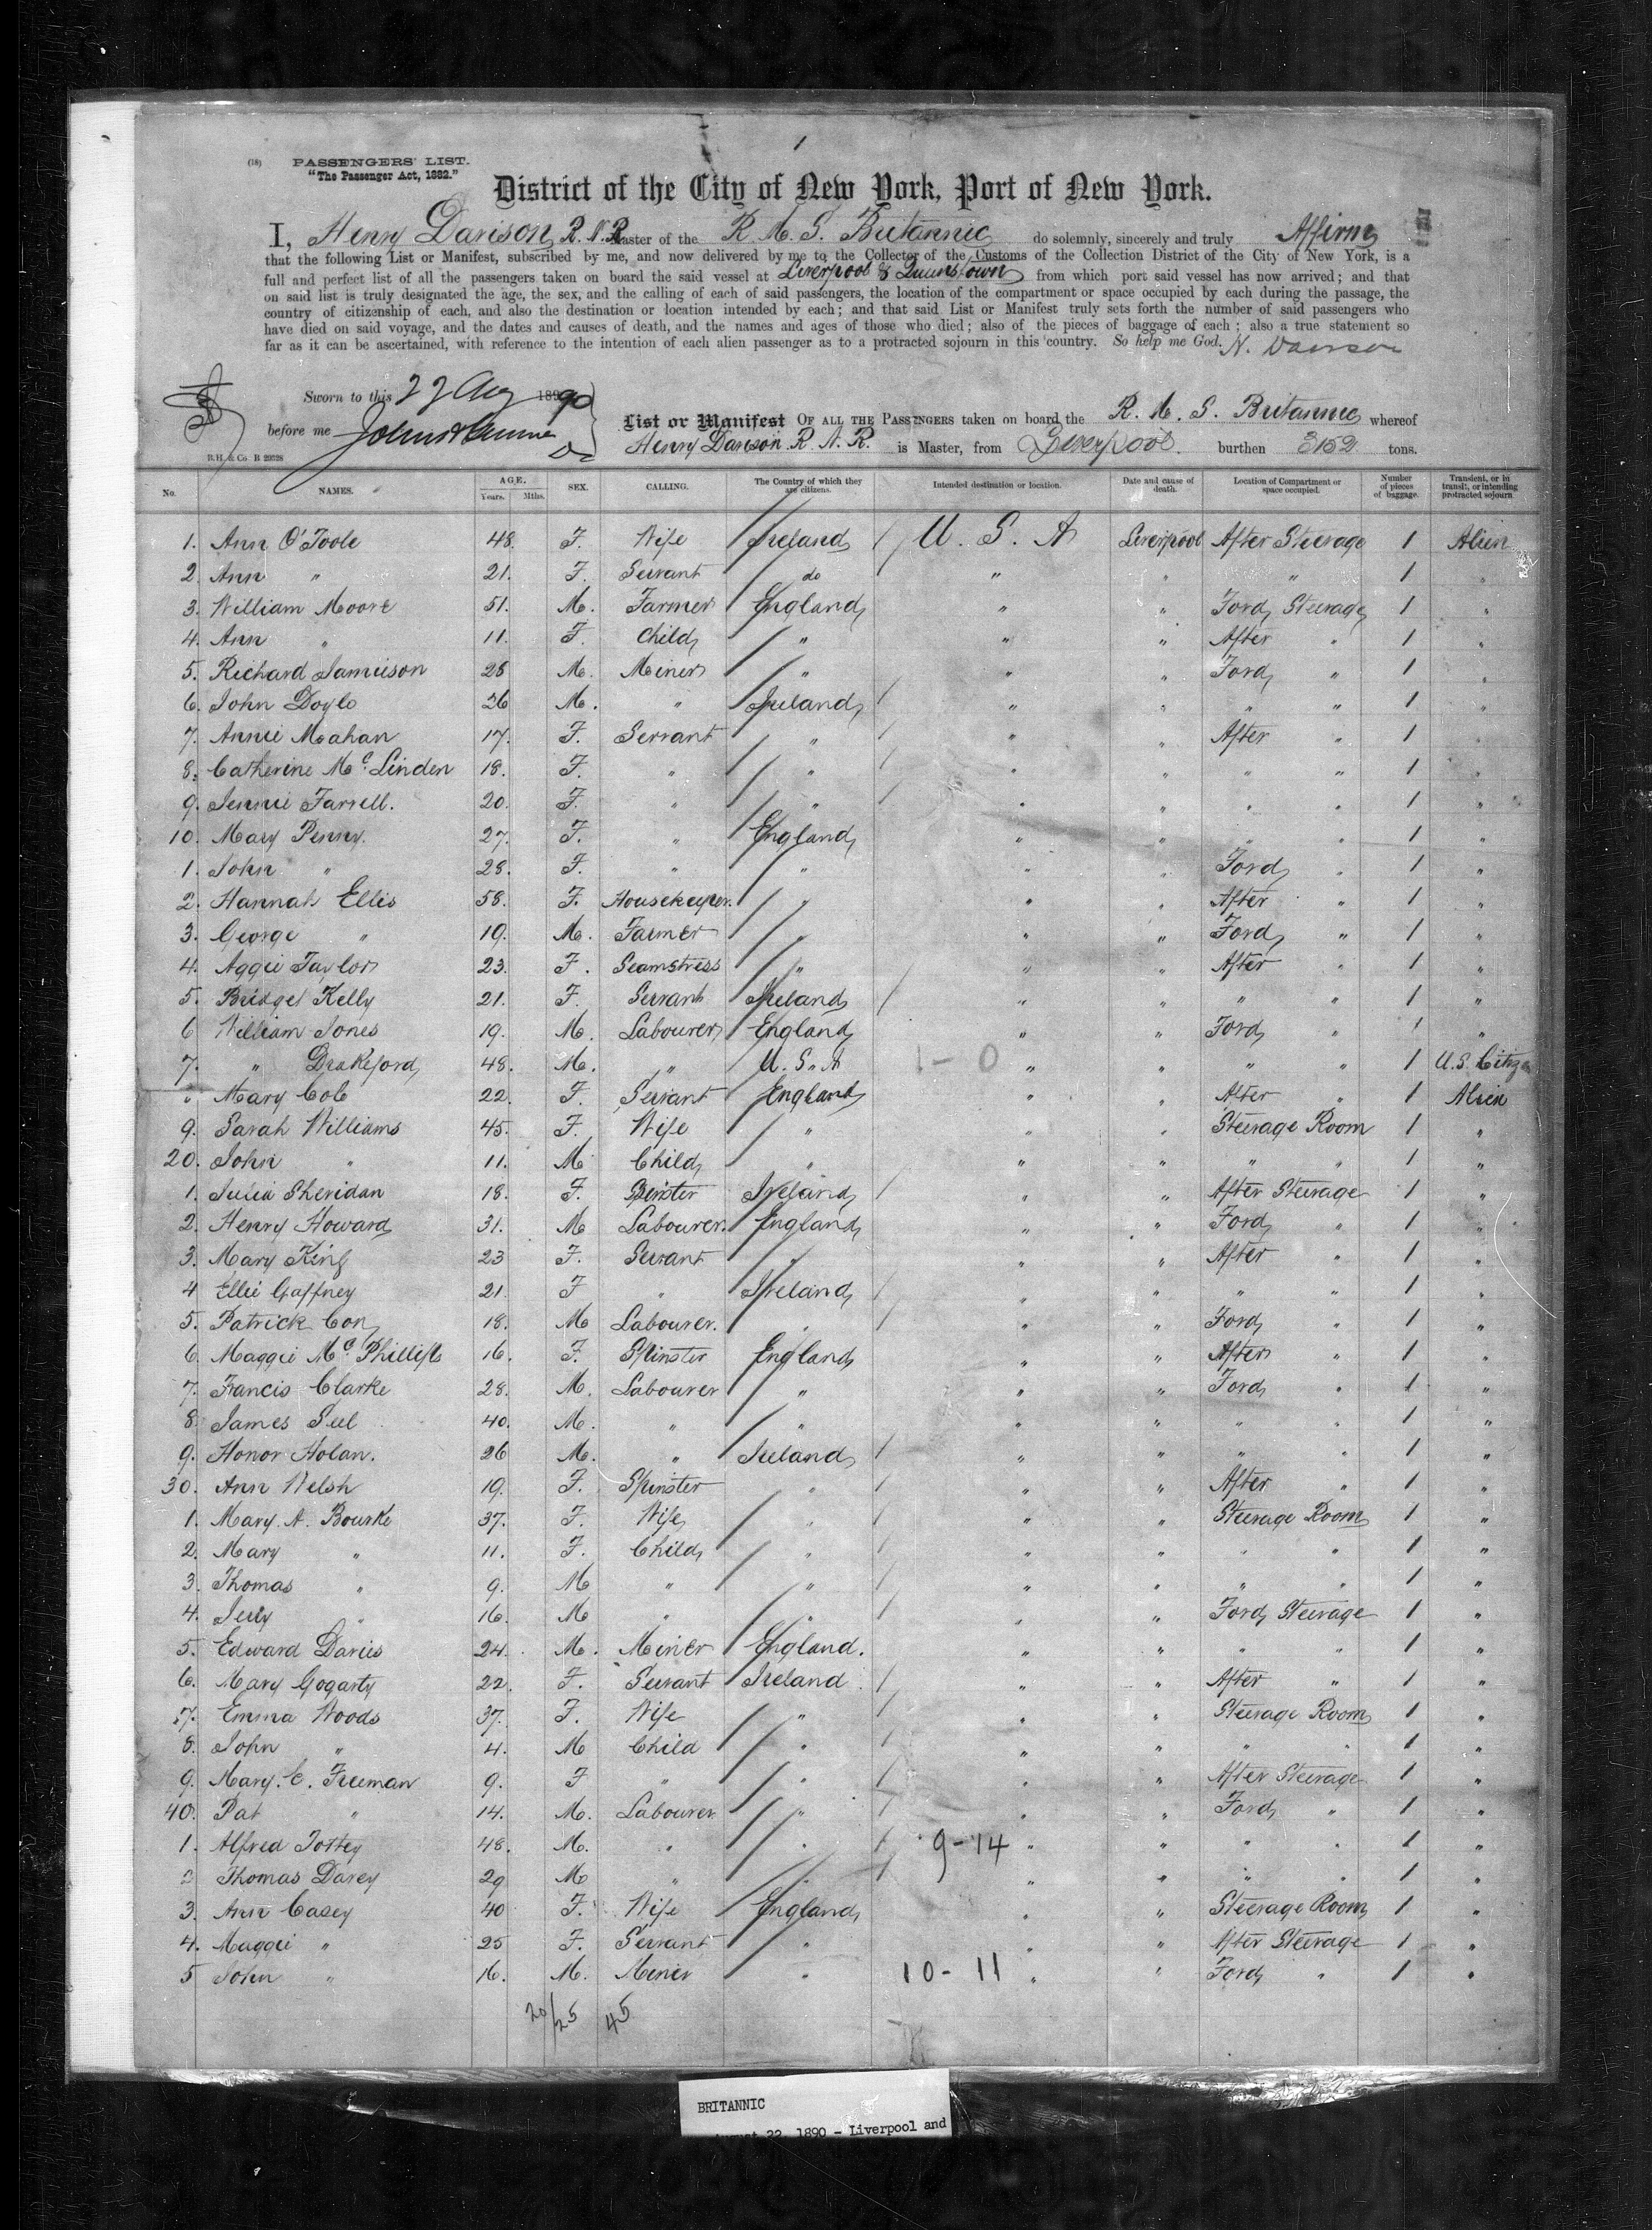 1
(18) PASSENGERS' LIST.
"The Passenger Act, 1882."
District of the City of New York, Port of New York.
I, Henry Davison R.N.R. Master of the R. M. S. Britannic do solemnly, sincerely and truly Affirm
that the following List or Manifest, subscribed by me, and now delivered by me to the Collector of the Customs of the Collection District of the City of New York, is a
full and perfect list of all the passengers taken on board the said vessel at Liverpool & Queenstown from which port said vessel has now arrived; and that
on said list is truly designated the age, the sex, and the calling of each of said passengers, the location of the compartment or space occupied by each during the passage, the
country of citizenship of each, and also the destination or location intended by each; and that said List or Manifest truly sets forth the number of said passengers who
have died on said voyage, and the dates and causes of death, and the names and ages of those who died; also of the pieces of baggage of each; also a true statement so
far as it can be ascertained, with reference to the intention of each alien passenger as to a protracted sojourn in this country. So help me God. H. Davison
Sworn to this 22 Aug 1890
before me
List or Manifest OF ALL THE PASSENGERS taken on board the R. M. S. Britannic whereof
Henry Davison R. N. R. is Master, from Liverpool. burthen 3152 tons.
R.H. & Co. B 29328
No. NAMES. AGE. Years. Mths. SEX. CALLING. The Country of which they are citizens. Intended destination or location. Date and cause of death. Location of Compartment or space occupied. Number of pieces of baggage. Transient, or in transit, or intending protracted sojourn
1. Ann O'Toole 48. F. Wife Ireland / U. S. A Liverpool After Steerage 1 Alien
2. Ann " 21. F. Servant do / " " " 1 "
3. William Moore 51. M. Farmer England " " Ford Steerage 1 "
4. Ann " 11. F. Child " " " After " 1 "
5. Richard Jamieson 28 M. Miner " " " Ford " 1 "
6. John Doyle 26 M. " Ireland / " " " " 1 "
7. Annie Mahan 17. F. Servant " / " " After " 1 "
8. Catherine Mc Linden 18. F. " " / " " " " 1 "
9. Jennie Farrell. 20. F. " " / " " " " 1 "
10. Mary Penny. 27. F. " England " " " " 1 "
1. John " 28. F. " " " " Ford " 1 "
2. Hannah Ellis 58. F. Housekeeper. " " " After " 1 "
3. George " 19. M. Farmer " " " Ford " 1 "
4. Aggie Taylor 23. F. Seamstress " " " After " 1 "
5. Bridget Kelly 21. F. Servant Ireland / " " " " 1 "
6 William Jones 19. M. Labourer England " " Ford " 1 "
7. " Drakeford 48. M. " U. S. A 1-0 " " " " 1 U.S. Citizen
Mary Cole 22. F. Servant England " " After " 1 Alien
9. Sarah Williams 45. F. Wife " " " Steerage Room 1 "
20. John " 11. M Child " " " " " 1 "
1. Julia Sheridan 18. F. Spinster Ireland / " " After Steerage 1 "
2. Henry Howard 31. M Labourer. England " " Ford " 1 "
3. Mary King 23 F. Servant " " " After " 1 "
4 Ellie Gaffney 21. F " Ireland / " " " " 1 "
5. Patrick Coy 18. M Labourer. " / " " Ford " 1 "
6. Maggie Mc Phillips 16. F. Spinster England " " After " 1 "
7. Francis Clarke 28. M. Labourer " " " Ford " 1 "
8. James Seel 40. M. " " " " " " 1 "
9. Honor Holan. 26 M. " Ireland / " " " " 1 "
30. Ann Welsh 19. F. Spinster " / " " After " 1 "
1. Mary. A. Bourke 37. F. Wife " / " " Steerage Room 1 "
2. Mary " 11. F. Child " / " " " " 1 "
3. Thomas " 9. M " " / " " " " 1 "
4. " 16. M " " / " " Ford Steerage 1 "
5. Edward Davies 24. M. Miner England. " " " " 1 "
6. Mary Gogarty 22. F. Servant Ireland / " " After " 1 "
7. Emma Woods 37. F. Wife " / " " Steerage Room 1 "
8. John " 4. M Child " / " " " " 1 "
9. Mary. C. Freeman 9. F " " / " " After Steerage 1 "
40. Pat " 14. M. Labourer " / " " Ford " 1 "
1. Alfred Tottey 48. M. " " / 9-14 " " " " 1 "
2 Thomas Davey 29 M " " / " " " " 1 "
3. Ann Casey 40 F. Wife England " " Steerage Room 1 "
4. Maggie " 25 F. Servant " " " After Steerage 1 "
5 John " 16. M. Miner " 10-11 " " Ford " 1 "
20/25 45
BRITANNIC
August 22, 1890 - Liverpool and